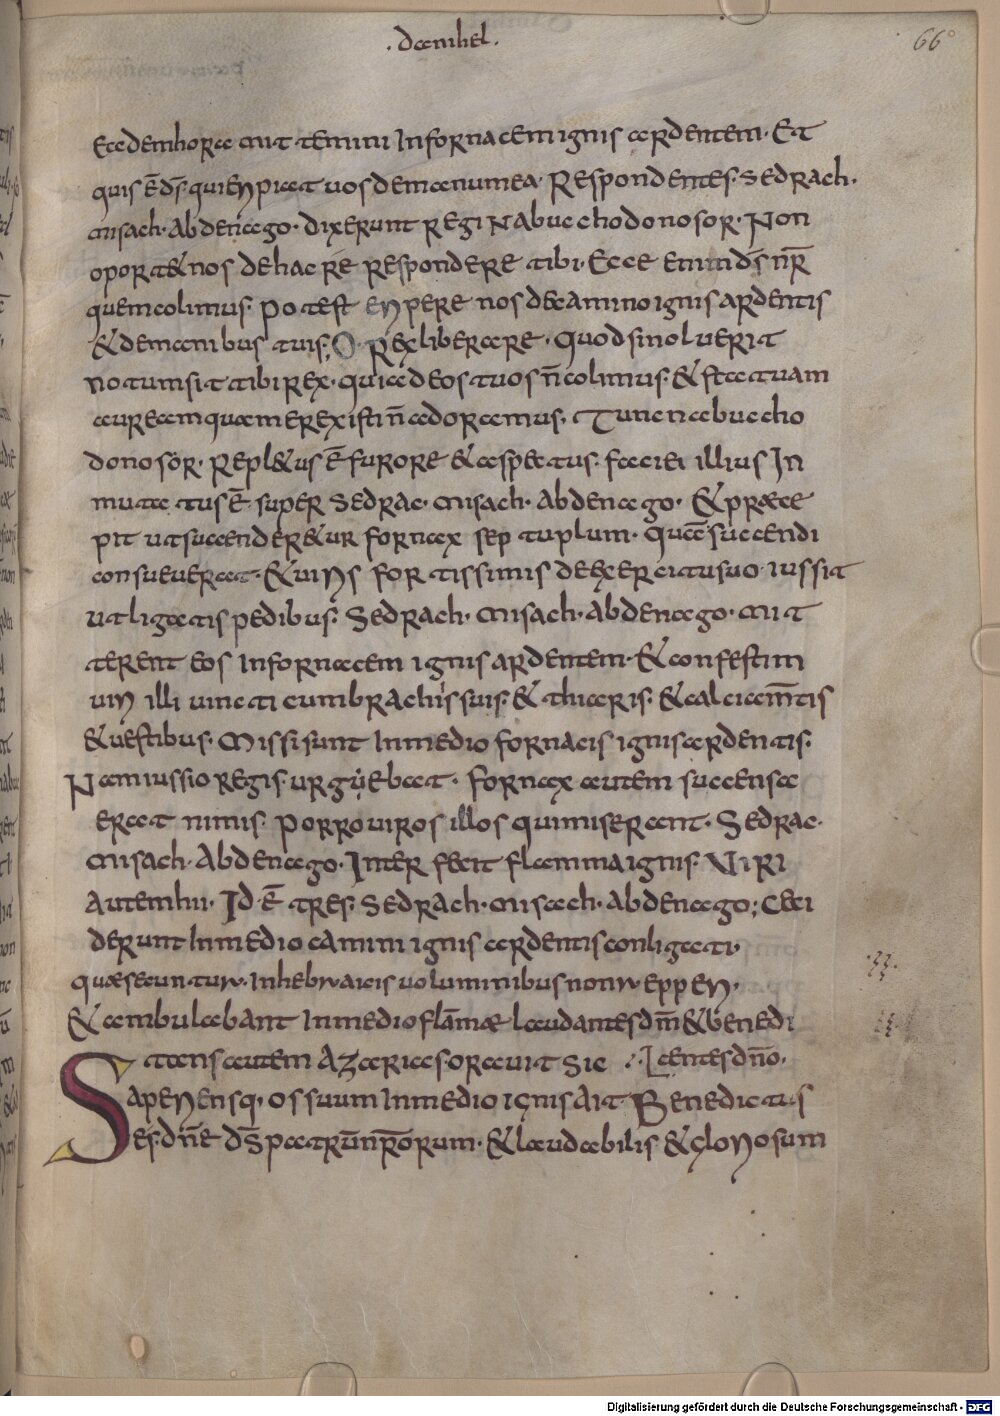 .danihel.
66
eadem hora mittemini In fornacem ignis ardentem· Et
quis ē d̄s· qui eripiat uos de manu mea· Respondentes· Sedrach·
misach· Abdenago· dixerunt regi Nabuchodonosor· Non
oport& nos de hac re respondere tibi· Ecce enim d̄s n̄r
quem colimus· potest eripere nos de camino ignis ardentis
& de manibus tuis; O· rex liberare· quod si noluerit
notum sit tibi rex· quia deos tuos n̄ colimus· & statuam
auream quam erexisti n̄ adoramus· Tunc nabucho
donosor· repl&us ē furore & aspectus· faciei illius In
mutatus ē· super Sedrac· misach· Abdenago· & præce
pit ut succender&ur fornax septuplum· quā succendi
consueuerat· & uiris fortissimis de exercitu suo iussit
ut ligatis pedibus· Sedrach· misach· Abdenago· mit
terent eos In fornacem ignis ardentem· & confestim
uiri illi uincti cum brachiis suis· & thiaris· & calciam̄tis
& uestibus· Missi sunt In medio fornacis ignis ardentis·
Nam iussio regis· urguebat· fornax autem succensa
erat nimis· porro uiros illos qui miserant· Sedrac·
misach· Abdenago· Inter fecit flamma ignis· Viri
autem hii· Id ē tres· Sedrach· misach· Abdenago; Ceci
derunt In medio camini ignis ardentis conligati·
quæ secuntur· In hebraicis uoluminibus non repperi·
& ambulabant In medio flāmæ laudantes dm̄ & benedi
Stans autem Azarias orauit sic ·:· centes dn̄o·
aperiensq· os suum In medio ignis Ait Benedictus
es· dn̄e d̄s patrūn̄rorum· & laudabilis & gloriosum
Digitalisierung gefördert durch die Deutsche Forschungsgemeinschaft - DFG